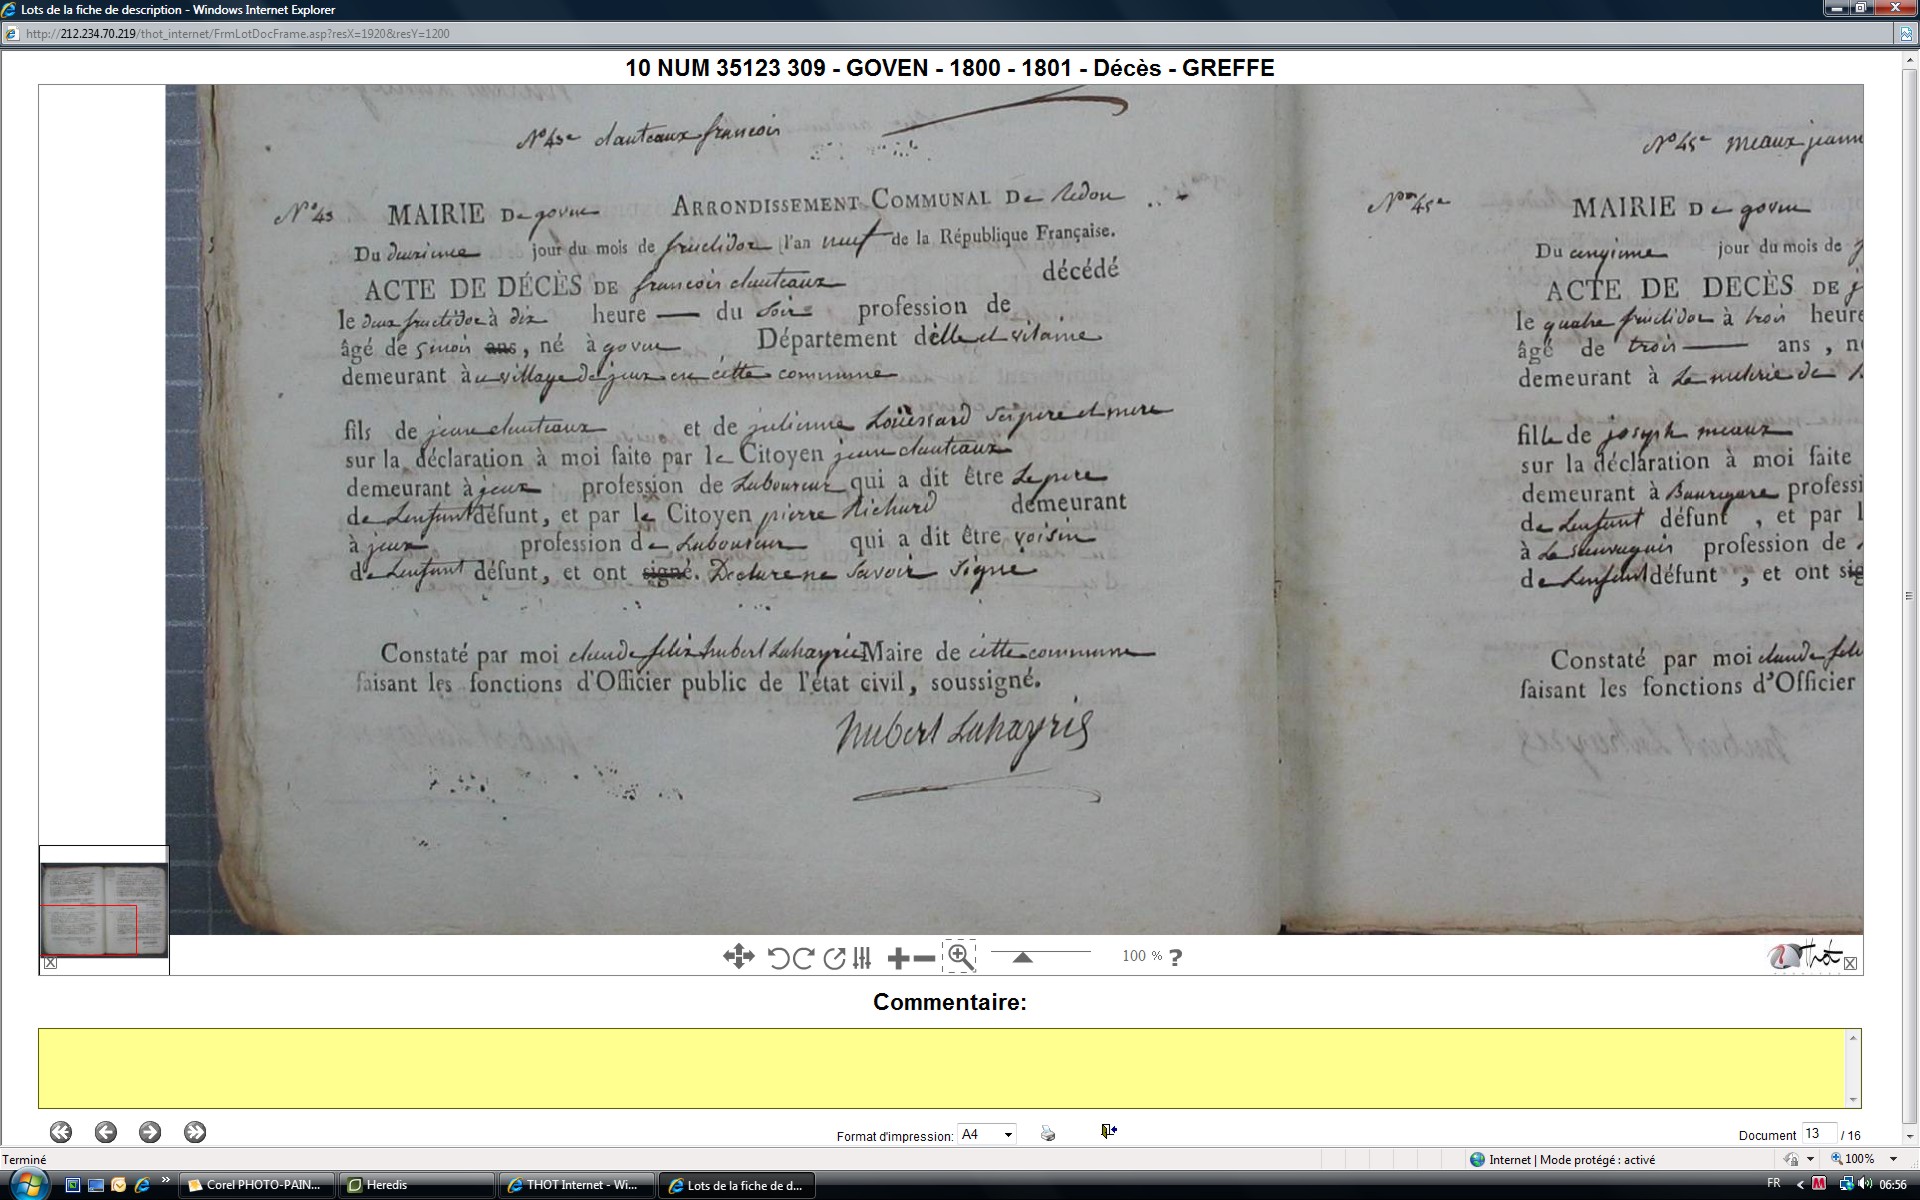 Lots de la fiche de description - Windows Internet Explorer
http://212.234.70.219/thot_internet/FrmLotDocFrame.asp?resX=1920&resY=1200
10 NUM 35123 309 - GOVEN - 1800 - 1801 - Décès - GREFFE
N° 43e dauteaux francois
N° 43 MAIRIE De goven ARRONDISSEMENT COMMUNAL De Redon
Du deuxieme jour du mois de fructidor l'an neuf de la République Française.
ACTE DE DÉCÈS DE francois dauteaux décédé
le deux fructidor à dix heure du soir profession de
âgé de 5 mois ans, né à goven Département d'ille et vilaine
demeurant à u village de jeux en cette commune
fils de jean dauteaux et de julienne Loüessard ses pere et mere
sur la déclaration à moi faite par le Citoyen jean dauteaux
demeurant à jeux profession de Laboureur qui a dit être Le pere
de Lenfant défunt, et par le Citoyen pierre Richard demeurant
à jeux profession de Laboureur qui a dit être voisin
de Lenfant défunt, et ont signé. Declare ne savoir signe
Constaté par moi claude felix hubert Lahayrie Maire de cette commune
faisant les fonctions d'Officier public de l'état civil, soussigné.
hubert Lahayris
N° 45e meaux jeann
N° 45e MAIRIE De goven
Du cinqieme jour du mois de
ACTE DE DECÈS DE j
le quatre fructidor à trois heure
âgé de trois ans, n
demeurant à
fille de joseph meaux
sur la déclaration à moi faite
demeurant à professi
de Lenfant défunt, et par l
à profession de
de Lenfant défunt, et ont sig
Constaté par moi claude feli
faisant les fonctions d'Officier
100 % ?
Thot
Commentaire:
Format d'impression: A4
Document 13 / 16
Terminé
Internet | Mode protégé : activé
100%
Corel PHOTO-PAIN...
Heredis
THOT Internet - Wi...
Lots de la fiche de d...
FR
06:56